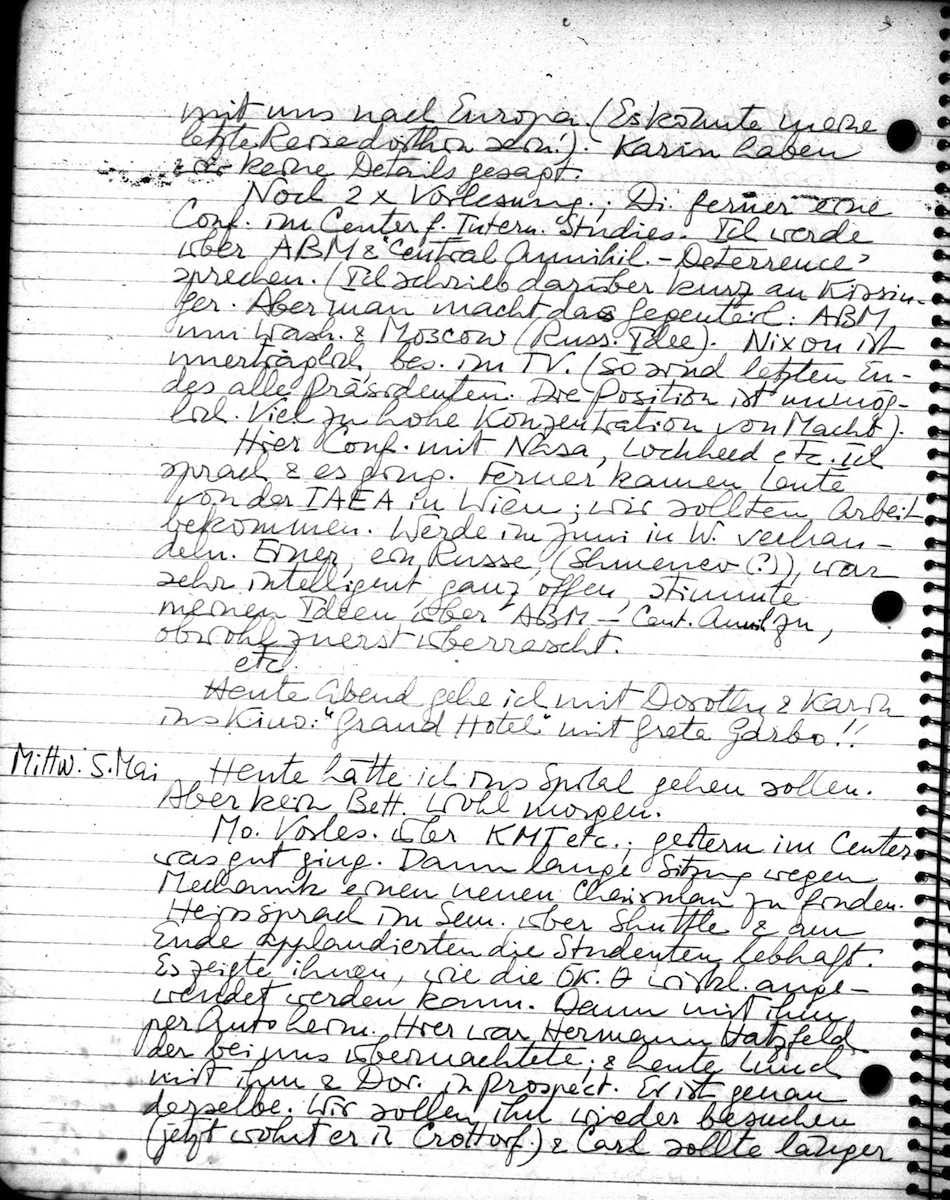 mit uns nach Europa (Es könnte meine
letzte Reise dorthin sein!). Karin haben
wir keine Details gesagt.
Noch 2x Vorlesung.; Di. ferner eine
Conf. im Center f. Intern. Studies. Ich werde
über ABM & "Central Annihil. - Deterrence"
sprechen. (Ich schrieb darüber kurz an Kissin-
ger. Aber man macht das Gegenteil: ABM
um Wash. & Moscow (Russ. Idee). Nixon ist
unerträglich, bes. im TV. (So sind letzten En-
des alle Präsidenten. Die Position ist unmög-
lich. Viel zu hohe Konzentration von Macht).
Hier Conf. mit Nasa, Lockheed etc. Ich
sprach & es ging. Ferner kamen Leute
von der IAEA in Wien; wir sollten Arbeit
bekommen. Werde im Juni in W. verhan-
deln. Einer, ein Russe, (Shmenev (?)), war
sehr intelligent, ganz offen, stimmte
meinen Ideen über ABM - Cent. Annih. zu,
obwohl zuerst überrascht.
etc.
Heute Abend gehe ich mit Dorothy & Karin
ins Kino: "Grand Hotel" mit Greta Garbo!!
Mittw. 5. Mai Heute hätte ich ins Spital gehen sollen.
Aber kein Bett. Wohl morgen.
Mo. Vorles. über KMT etc.; gestern im Center
was gut ging. Dann lange Sitzung wegen
Mechanik einen neuen Chairman zu finden.
Heiss sprach im Sem. über Shuttle & am
Ende applaudierten die Studenten lebhaft.
Es zeigte ihnen, wie die OK. wirkl. ange-
wendet werden kann. Dann mit ihm
per Auto heim. Hier war Hermann Hatzfeld
der bei uns übernachtete; & heute Lunch
mit ihm & Dor. in Prospect. Er ist genau
derselbe. Wir sollen ihn wieder besuchen
(jetzt wohnt er in Crottorf.) & Carl sollte länger